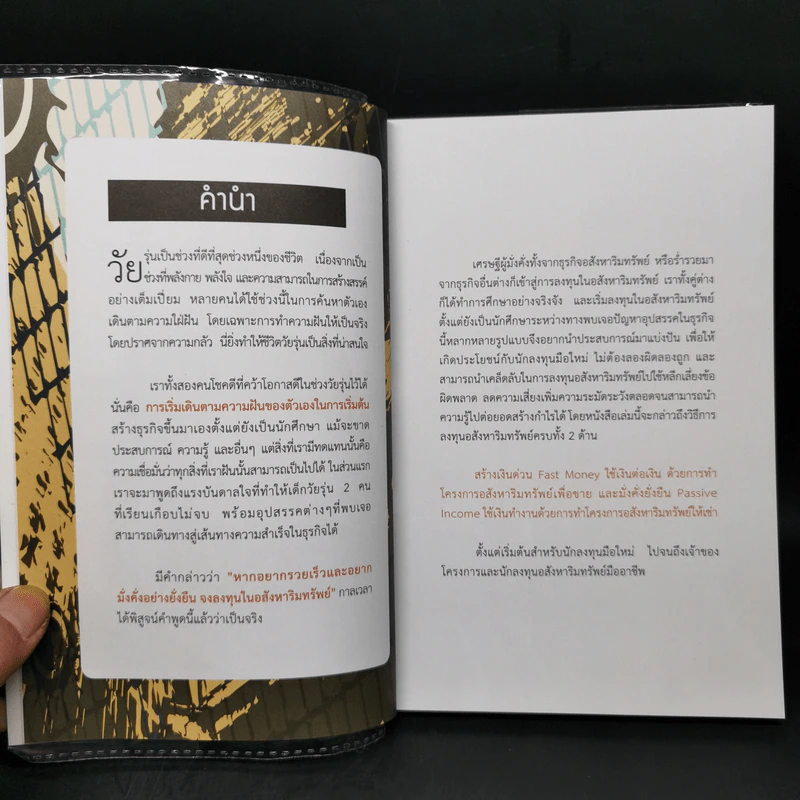 คำนำ
วัยรุ่นเป็นช่วงที่ดีที่สุดช่วงหนึ่งของชีวิต เนื่องจากเป็น
ช่วงที่พลังกาย พลังใจ และความสามารถในการสร้างสรรค์
อย่างเต็มเปี่ยม หลายคนได้ใช้ช่วงนี้ในการค้นหาตัวเอง
เดินตามความใฝ่ฝัน โดยเฉพาะการทำความฝันให้เป็นจริง
โดยปราศจากความกลัว นี่ยิ่งทำให้ชีวิตวัยรุ่นเป็นสิ่งที่น่าสนใจ
เราทั้งสองคนโชคดีที่คว้าโอกาสดีในช่วงวัยรุ่นไว้ได้
นั่นคือ การเริ่มเดินตามความฝันของตัวเองในการเริ่มต้น
สร้างธุรกิจขึ้นมาเองตั้งแต่ยังเป็นนักศึกษา แม้จะขาด
ประสบการณ์ ความรู้ และอื่นๆ แต่สิ่งที่เรามีทดแทนนั้นคือ
ความเชื่อมั่นว่าทุกสิ่งที่เราฝันนั้นสามารถเป็นไปได้ ในส่วนแรก
เราจะมาพูดถึงแรงบันดาลใจที่ทำให้เด็กวัยรุ่น 2 คน
ที่เรียนเกือบไม่จบ พร้อมอุปสรรคต่างๆที่พบเจอ
สามารถเดินทางสู่เส้นทางความสำเร็จในธุรกิจได้
มีคำกล่าวว่า "หากอยากรวยเร็วและอยาก
มั่งคั่งอย่างยั่งยืน จงลงทุนในอสังหาริมทรัพย์" กาลเวลา
ได้พิสูจน์คำพูดนี้แล้วว่าเป็นจริง
เศรษฐีผู้มั่งคั่งทั้งจากธุรกิจอสังหาริมทรัพย์ หรือร่ำรวยมา
จากธุรกิจอื่นต่างก็เข้าสู่การลงทุนในอสังหาริมทรัพย์ เราทั้งคู่ต่าง
ก็ได้ทำการศึกษาอย่างจริงจัง และเริ่มลงทุนในอสังหาริมทรัพย์
ตั้งแต่ยังเป็นนักศึกษาระหว่างทางพบเจอปัญหาอุปสรรคในธุรกิจ
นี้หลากหลายรูปแบบจึงอยากนำประสบการณ์มาแบ่งปัน เพื่อให้
เกิดประโยชน์กับนักลงทุนมือใหม่ ไม่ต้องลองผิดลองถูก และ
สามารถนำเคล็ดลับในการลงทุนอสังหาริมทรัพย์ไปใช้หลีกเลี่ยงข้อ
ผิดพลาด ลดความเสี่ยงเพิ่มความระมัดระวังตลอดจนสามารถนำ
ความรู้ไปต่อยอดสร้างกำไรได้ โดยหนังสือเล่มนี้จะกล่าวถึงวิธีการ
ลงทุนอสังหาริมทรัพย์ครบทั้ง 2 ด้าน
สร้างเงินด่วน Fast Money ใช้เงินต่อเงิน ด้วยการทำ
โครงการอสังหาริมทรัพย์เพื่อขาย และมั่งคั่งยั่งยืน Passive
Income ใช้เงินทำงานด้วยการทำโครงการอสังหาริมทรัพย์ให้เช่า
ตั้งแต่เริ่มต้นสำหรับนักลงทุนมือใหม่ ไปจนถึงเจ้าของ
โครงการและนักลงทุนอสังหาริมทรัพย์มืออาชีพ